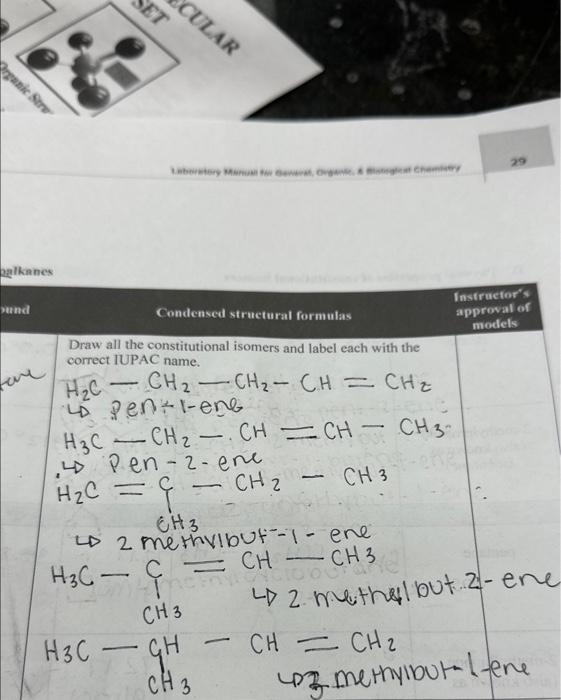 SET
ECULAR
Organic Stru
Laboratory Manual for General, Organic, & Biological Chemistry
29
oalkanes
ound
Condensed structural formulas
Instructor's
approval of
models
Draw all the constitutional isomers and label each with the
correct IUPAC name.
H₂C — CH₂ — CH₂ — CH = CH₂
↳ Pen-1-ene
H₃C — CH₂ — CH = CH — CH₃
↳ Pen-2-ene
H₂C = C — CH₂ — CH₃
CH₃
↳ 2 methylbut-1-ene
H₃C — C = CH — CH₃
CH₃
↳ 2 methylbut 2-ene
H₃C — CH — CH = CH₂
CH₃
↳ 3 methylbut-1-ene